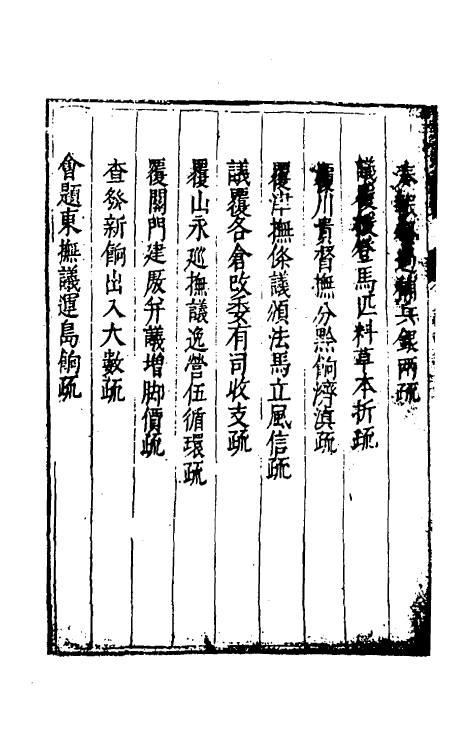 兵銀兩疏
議覆登馬匹料草本折疏
覆川貴督撫分黔餉濟滇疏
覆津撫條議頒法馬立風信疏
議覆各倉改委有司收支疏
覆山永巡撫議逃營伍循環疏
覆關門建厫弁議增脚價疏
查發新餉出入大數疏
會題東撫議運島餉疏